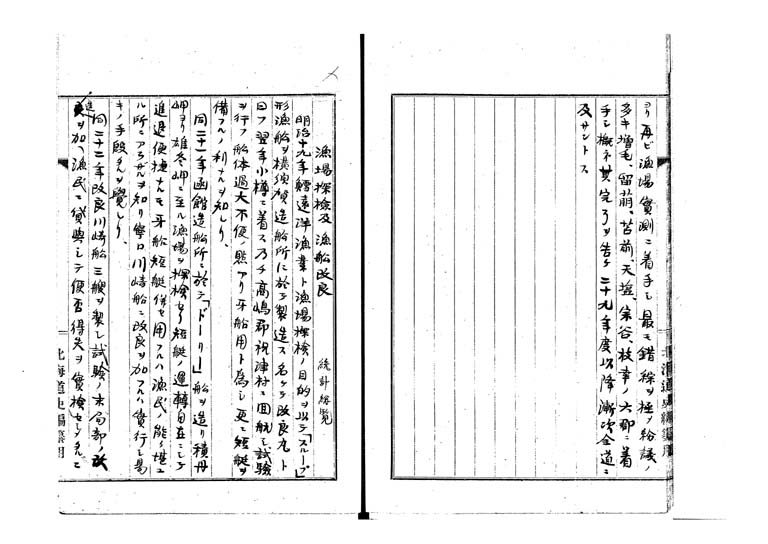 ヨリ再ビ漁場実測ニ着手シ最モ錯綜ヲ極メ紛議ノ
多キ増毛、留萌、苫前、天塩、宗谷、枝幸ノ六郡ニ着
手シ概ネ其完了ヲ告ケ二十九年度以降漸次全道ニ
及サントス
漁場探検及漁船改良 統計綜覧
明治十九年鱈遠洋漁業ト漁場探検ノ目的ヲ以テ「スループ」
形漁船ヲ横須賀造船所ニ於テ製造ス名ケテ改良丸ト
曰フ翌年小樽ニ着ス乃チ高嶋郡祝津村ニ回航シ試験
ヲ行フ船体過大不便ノ懸アリ牙船用ト為シ更ニ短艇ヲ
備フルノ利ナルヲ知レリ、
同二十一年函館造船所ニ於テ「ドーリー」船ヲ造リ積丹
岬ヨリ雄冬岬ニ至ル漁場ヲ探検セリ短艇ノ運転自在ニシテ
進退便捷ナルモ牙船短艇併セ用フルハ漁民ノ能ク堪ユ
ル所ニアラザルヲ知リ寧ロ川崎船ニ改良ヲ加フルハ実行シ易
キノ手段タルヲ覺レリ、
同二十二年改良川崎船三艘ヲ製シ試験ノ末局部ノ改
進
ヲ加ヘ漁民ニ貸與シテ便否得失ヲ實検セシメタルニ
北海道史編纂用
北海道史編纂用